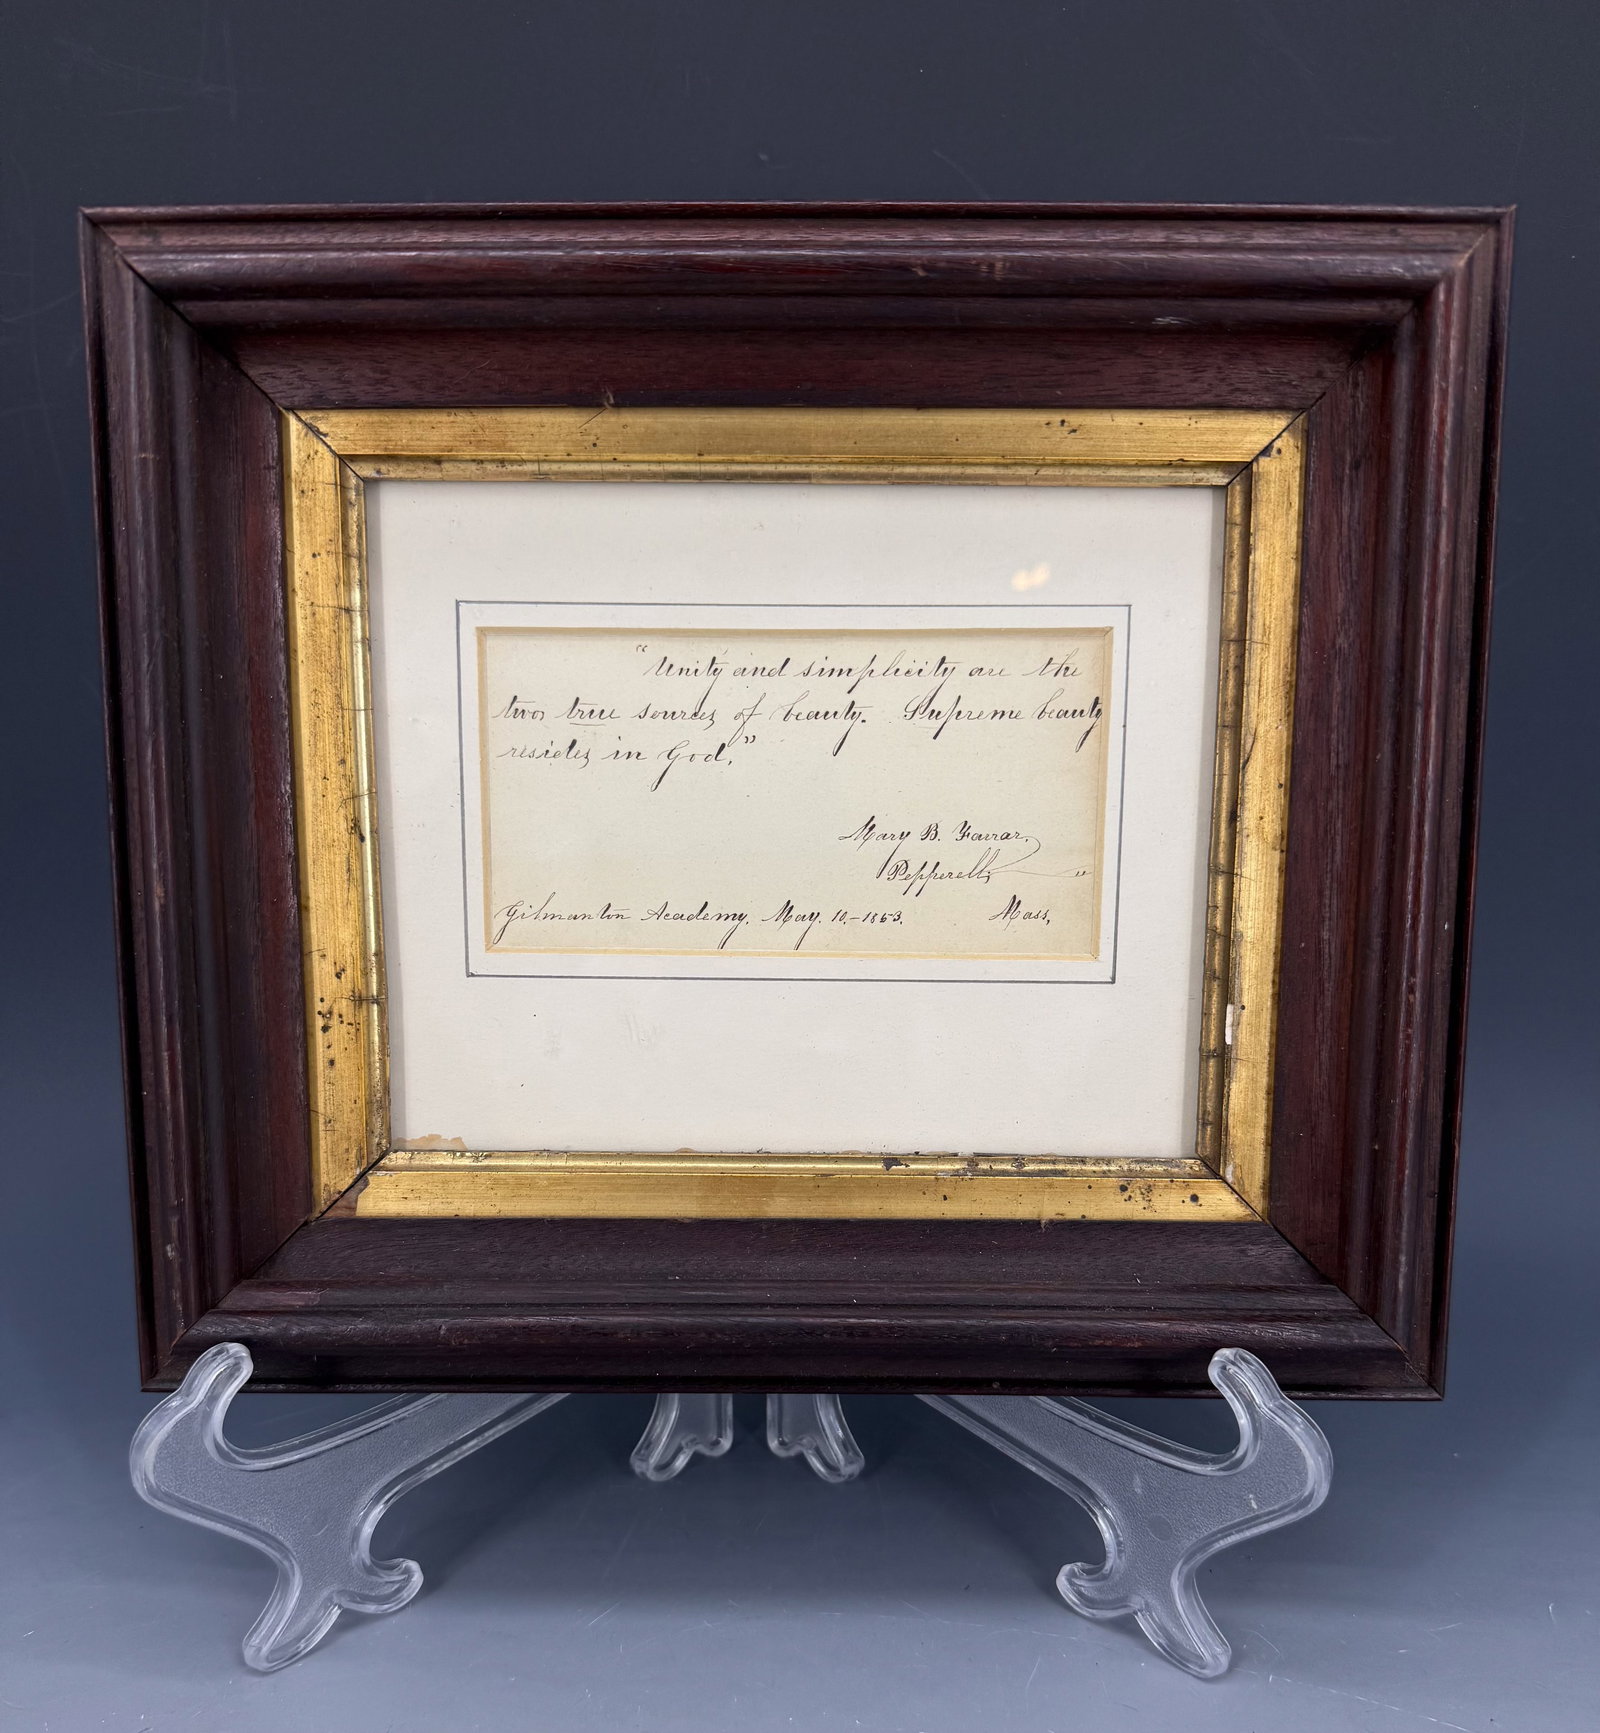 "Unity and simplicity are the
two true sources of beauty. Supreme beauty
resides in God."
Mary B. Farrar,
Pepperell, "
Gilmanton Academy, May. 10,-1853. Mass,